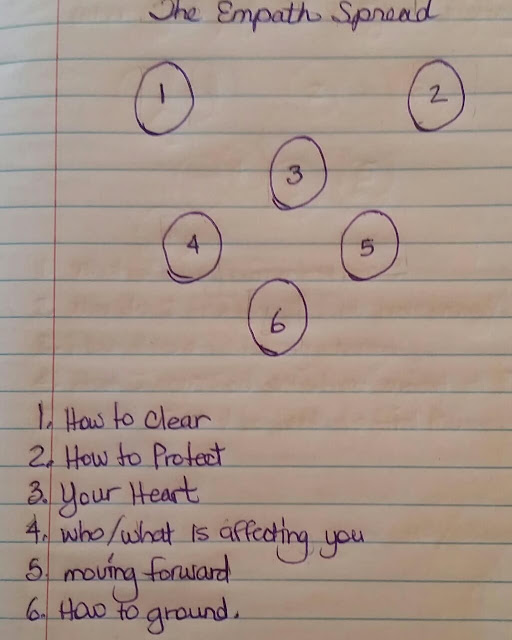 The Empath Spread
1 2
3
4 5
6
1. How to Clear
2. How to Protect
3. Your Heart
4. who/what is affecting you
5. moving forward
6. How to ground.